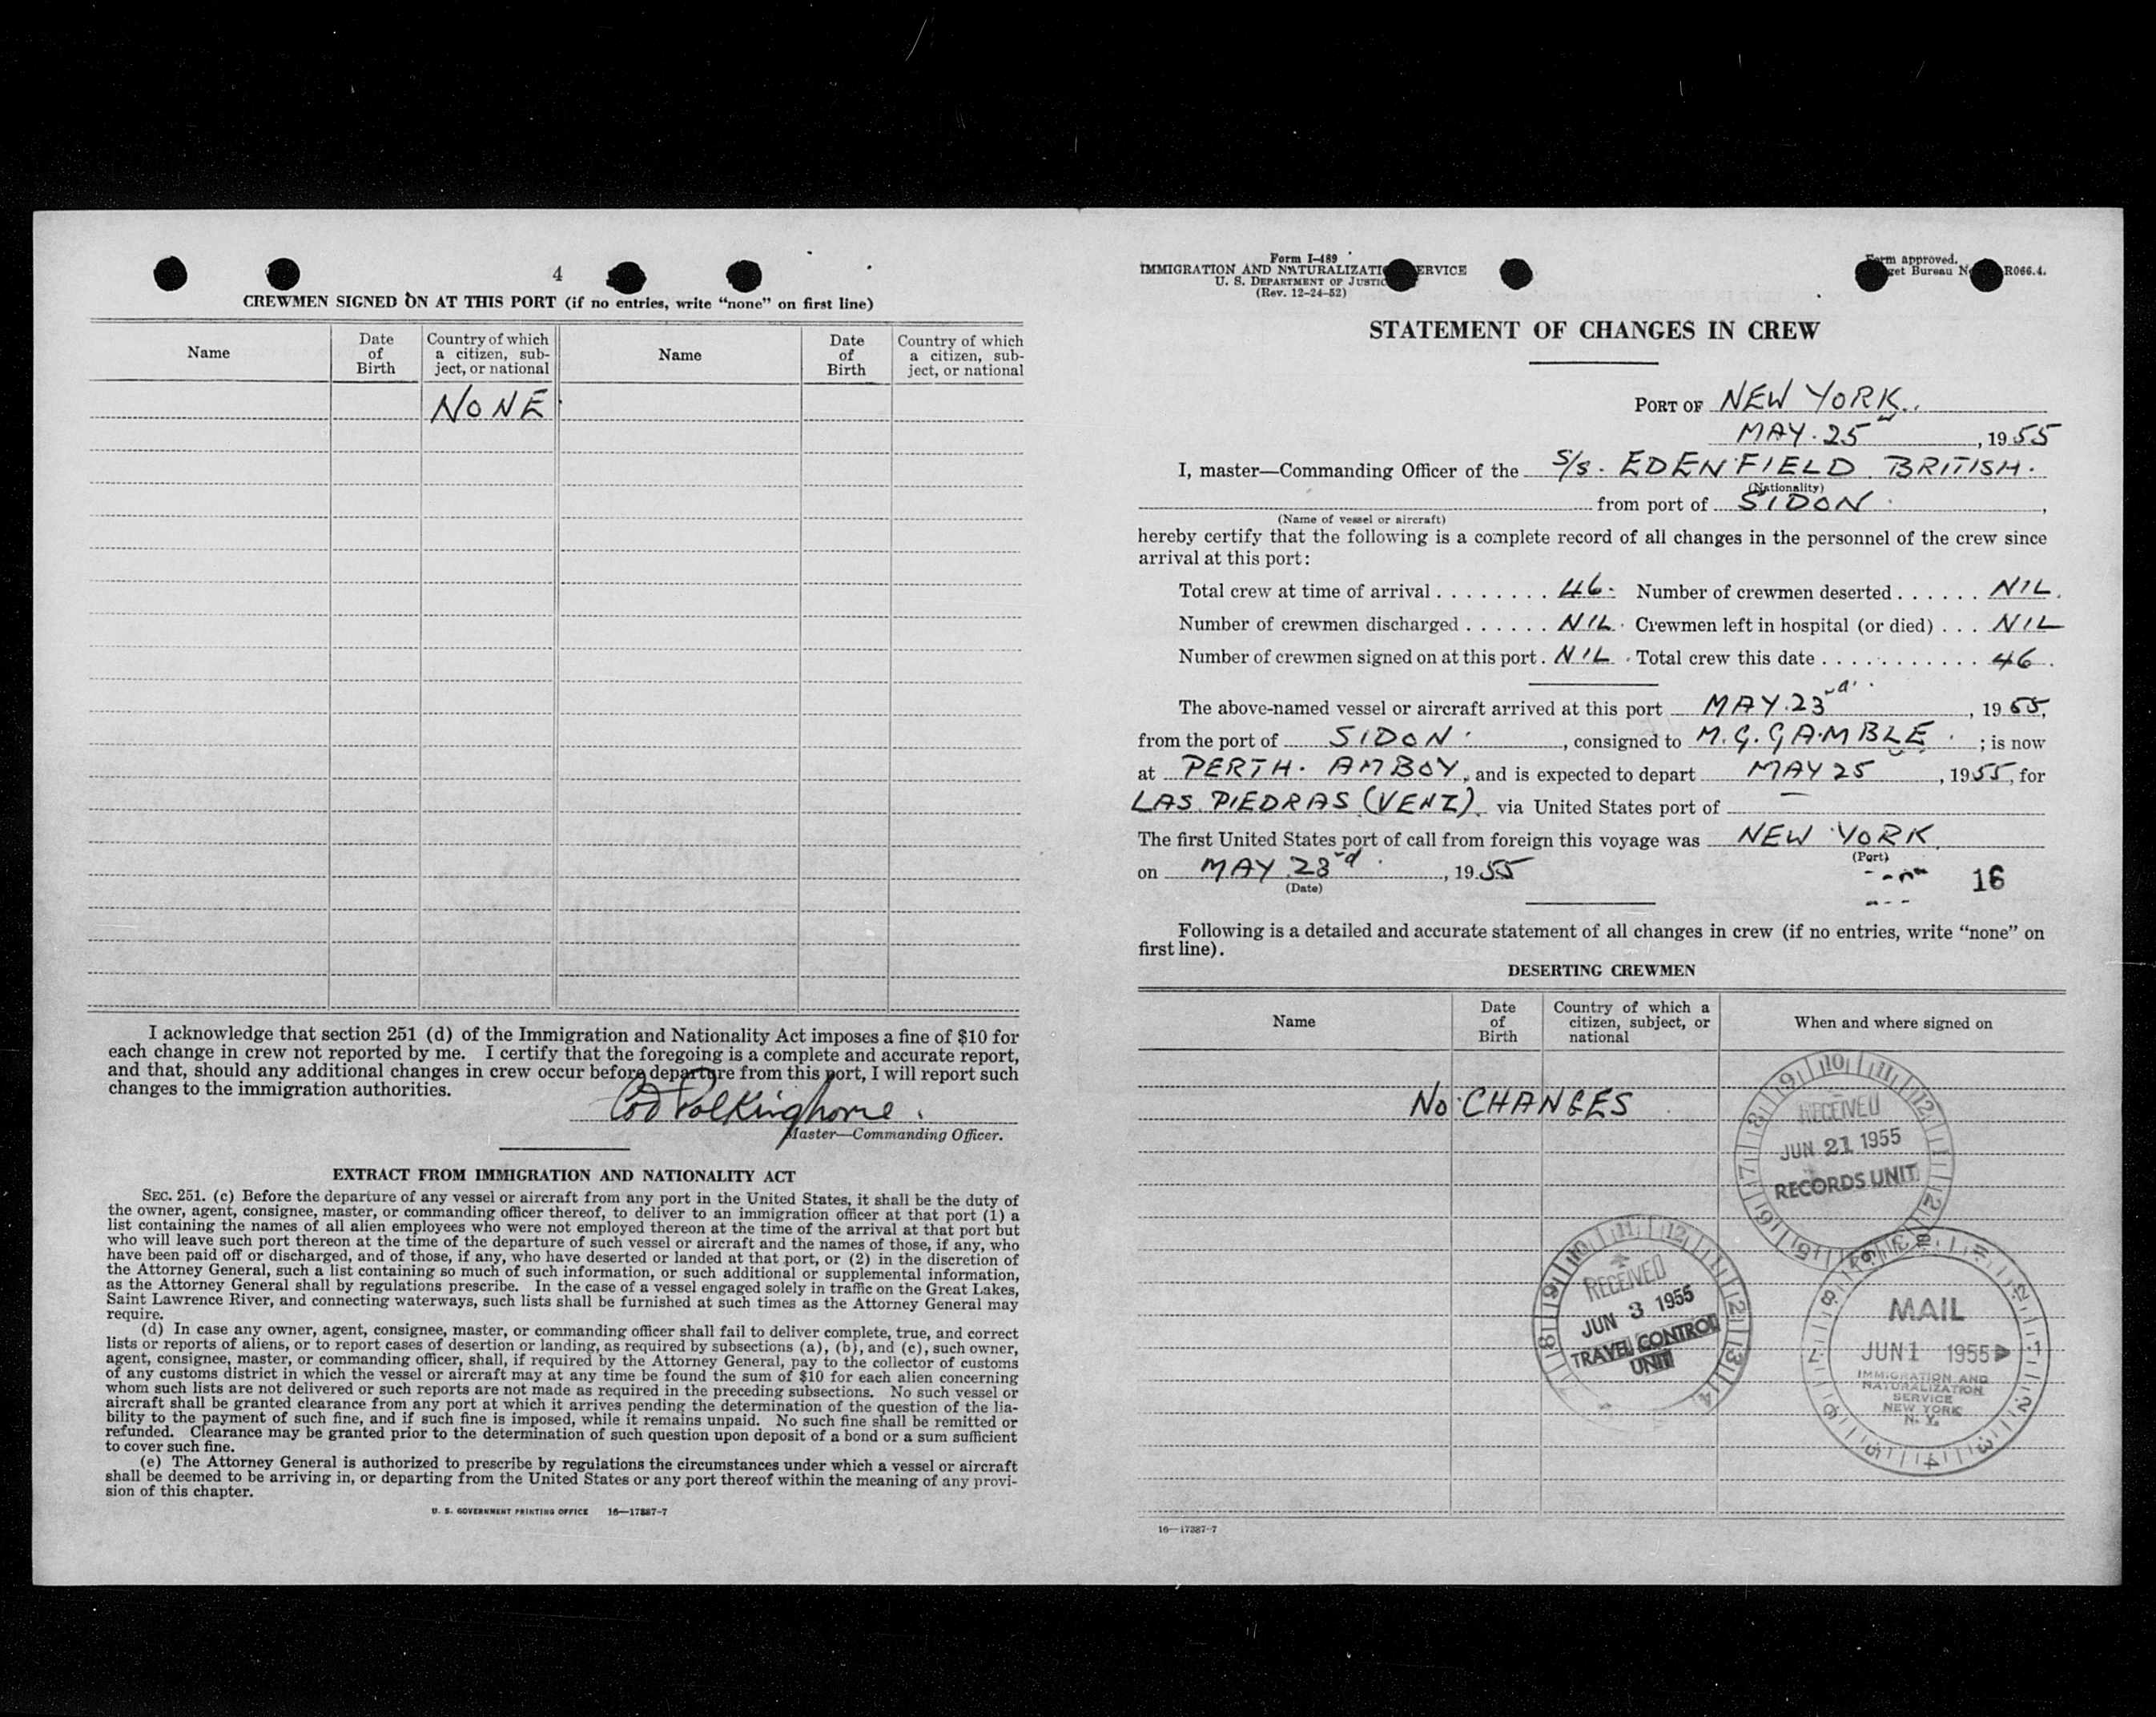 4
CREWMEN SIGNED ON AT THIS PORT (if no entries, write “none” on first line)
Name
Date of Birth
Country of which a citizen, subject, or national
Name
Date of Birth
Country of which a citizen, subject, or national
NONE
I acknowledge that section 251 (d) of the Immigration and Nationality Act imposes a fine of $10 for
each change in crew not reported by me. I certify that the foregoing is a complete and accurate report,
and that, should any additional changes in crew occur before departure from this port, I will report such
changes to the immigration authorities.
Polkinghorne.
Master—Commanding Officer.
EXTRACT FROM IMMIGRATION AND NATIONALITY ACT
SEC. 251. (c) Before the departure of any vessel or aircraft from any port in the United States, it shall be the duty of
the owner, agent, consignee, master, or commanding officer thereof, to deliver to an immigration officer at that port (1) a
list containing the names of all alien employees who were not employed thereon at the time of the arrival at that port but
who will leave such port thereon at the time of the departure of such vessel or aircraft and the names of those, if any, who
have been paid off or discharged, and of those, if any, who have deserted or landed at that port, or (2) in the discretion of
the Attorney General, such a list containing so much of such information, or such additional or supplemental information,
as the Attorney General shall by regulations prescribe. In the case of a vessel engaged solely in traffic on the Great Lakes,
Saint Lawrence River, and connecting waterways, such lists shall be furnished at such times as the Attorney General may
require.
(d) In case any owner, agent, consignee, master, or commanding officer shall fail to deliver complete, true, and correct
lists or reports of aliens, or to report cases of desertion or landing, as required by subsections (a), (b), and (c), such owner,
agent, consignee, master, or commanding officer, shall, if required by the Attorney General, pay to the collector of customs
of any customs district in which the vessel or aircraft may at any time be found the sum of $10 for each alien concerning
whom such lists are not delivered or such reports are not made as required in the preceding subsections. No such vessel or
aircraft shall be granted clearance from any port at which it arrives pending the determination of the question of the lia-
bility to the payment of such fine, and if such fine is imposed, while it remains unpaid. No such fine shall be remitted or
refunded. Clearance may be granted prior to the determination of such question upon deposit of a bond or a sum sufficient
to cover such fine.
(e) The Attorney General is authorized to prescribe by regulations the circumstances under which a vessel or aircraft
shall be deemed to be arriving in, or departing from the United States or any port thereof within the meaning of any provi-
sion of this chapter.
U. S. GOVERNMENT PRINTING OFFICE 16—17887-7
Form I-489
IMMIGRATION AND NATURALIZATION SERVICE
U. S. DEPARTMENT OF JUSTICE
(Rev. 12-24-52)
Form approved.
Budget Bureau No. R066.4.
STATEMENT OF CHANGES IN CREW
PORT OF NEW YORK.
MAY. 25, 1955
I, master—Commanding Officer of the S/S. EDENFIELD BRITISH.
(Nationality)
from port of SIDON.,
(Name of vessel or aircraft)
hereby certify that the following is a complete record of all changes in the personnel of the crew since
arrival at this port:
Total crew at time of arrival ........ 46. Number of crewmen deserted ...... NIL.
Number of crewmen discharged ...... NIL. Crewmen left in hospital (or died) ... NIL
Number of crewmen signed on at this port. NIL. Total crew this date ........... 46.
The above-named vessel or aircraft arrived at this port MAY. 23rd., 1955,
from the port of SIDON., consigned to M.G. GAMBLE.; is now
at PERTH. AMBOY, and is expected to depart MAY 25, 1955, for
LAS PIEDRAS (VENZ). via United States port of
The first United States port of call from foreign this voyage was NEW YORK.
(Port)
on MAY 23rd., 1955
(Date)
16
Following is a detailed and accurate statement of all changes in crew (if no entries, write “none” on
first line).
DESERTING CREWMEN
Name
Date of Birth
Country of which a citizen, subject, or national
When and where signed on
NO CHANGES
RECEIVED
JUN 21 1955
RECORDS UNIT
RECEIVED
JUN 3 1955
TRAVEL CONTROL
UNIT
MAIL
JUN 1 1955
IMMIGRATION AND
NATURALIZATION
SERVICE
NEW YORK
N. Y.
16—17887-7